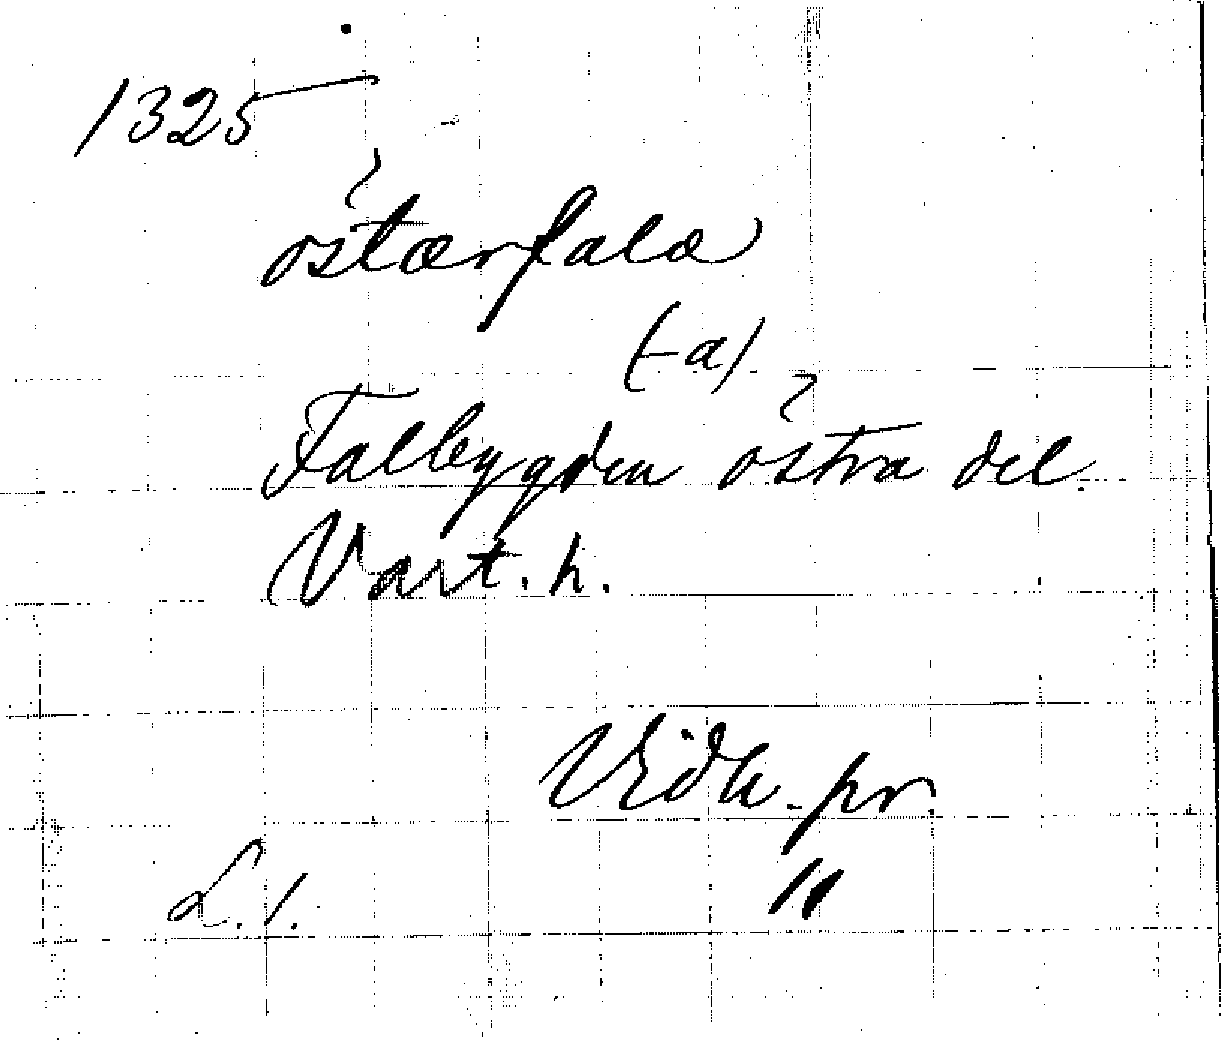 1325
östærfala
(-a)
Falbygden östra del.
Vart. h.
Vidk. pr.
L. 1. "